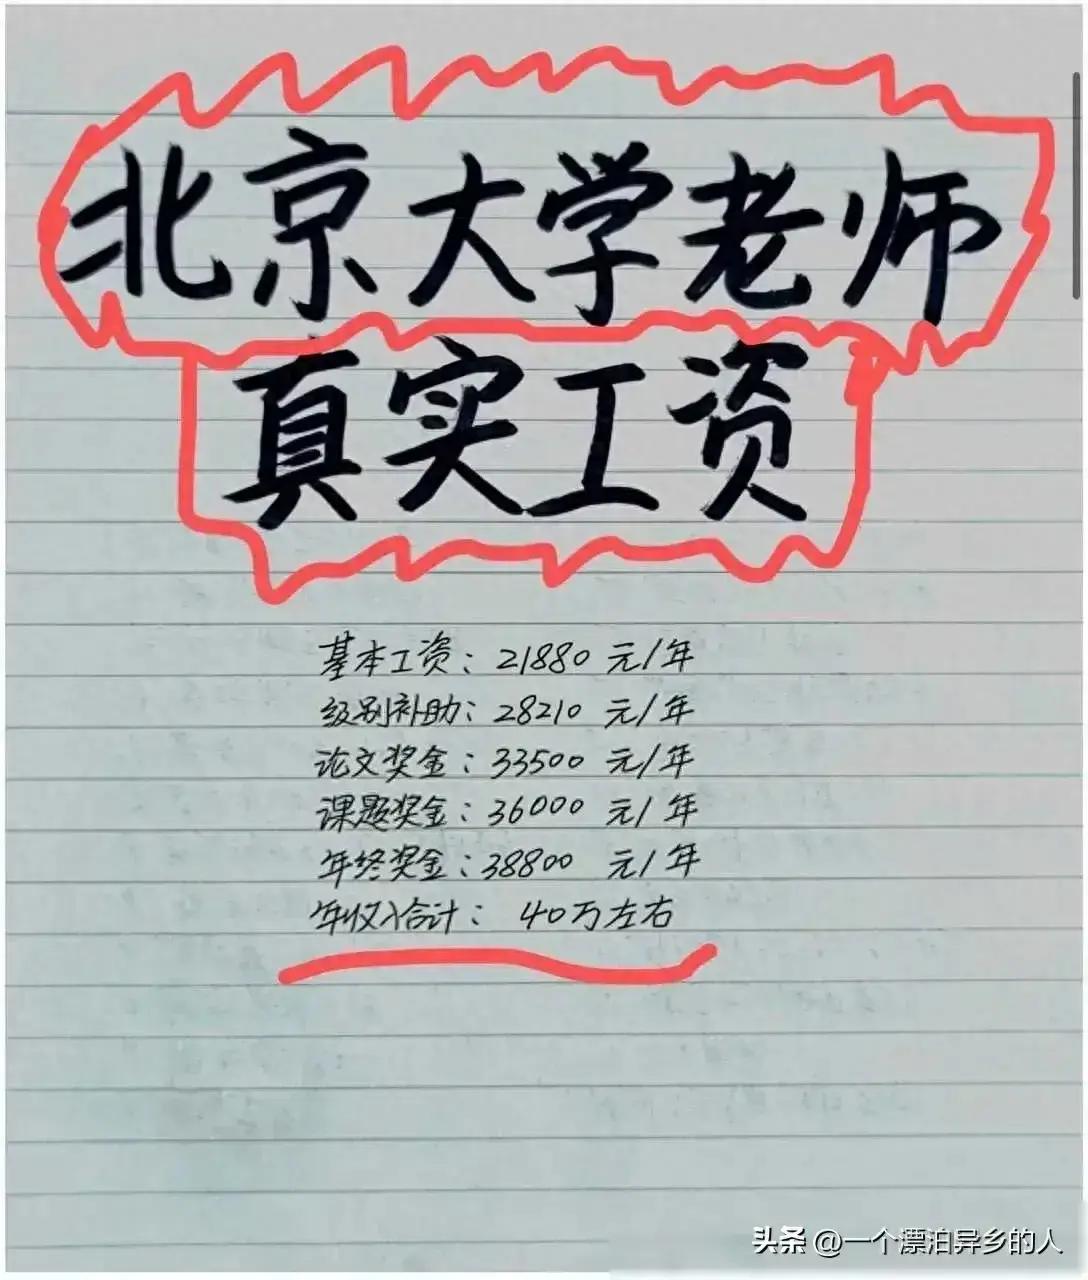 北京大学老师
真实工资
基本工资：21880 元/年
级别补助：28210 元/年
论文奖金：33500 元/年
课题奖金：36000 元/年
年终奖金：38800 元/年
年收入合计：40万左右
头条 @一个漂泊异乡的人